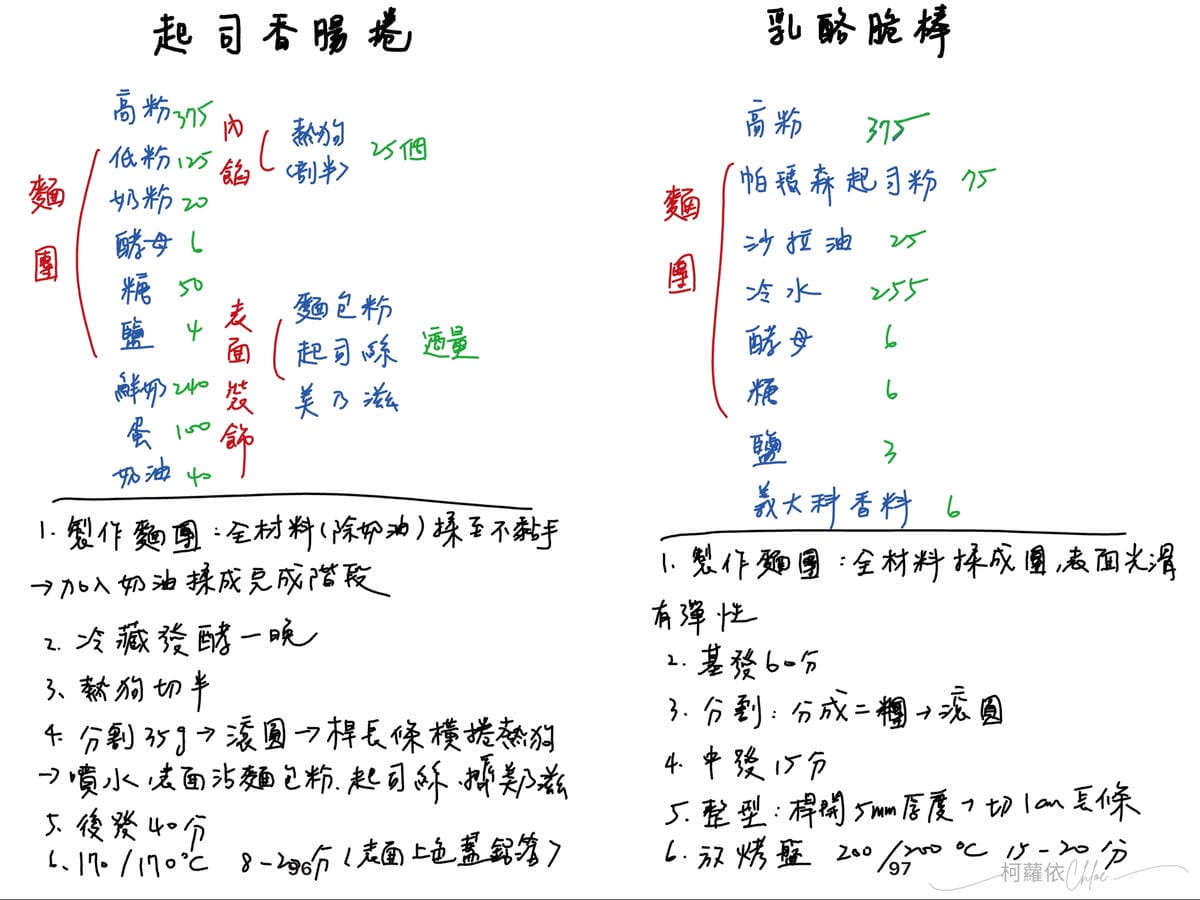 起司香腸捲
麵團
高粉 375
低粉 125
奶粉 20
酵母 6
糖 50
鹽 4
鮮奶 240
蛋 100
奶油 40
內餡
熱狗
(剖半)
25個
表面裝飾
麵包粉
起司絲
美乃滋
適量
1. 製作麵團:全材料(除奶油)揉至不黏手
→加入奶油揉成完成階段
2. 冷藏發酵一晚
3、熱狗切半
4. 分割35g→滾圓→桿長條橫捲熱狗
→噴水、表面沾麵包粉、起司絲、擠美乃滋
5. 後發40分
6. 170/170°C 8-20分(表面上色蓋鋁箔)
96
乳酪脆棒
麵團
高粉 375
帕瑪森起司粉 75
沙拉油 25
冷水 255
酵母 6
糖 6
鹽 3
義大利香料 6
1. 製作麵團:全材料揉成團,表面光滑
有彈性
2. 基發60分
3. 分割:分成二糰→滾圓
4. 中發15分
5. 整型:桿開5mm厚度→切1cm長條
6. 放烤盤 200/200°C 15-20分
97
柯蘿依Chloe